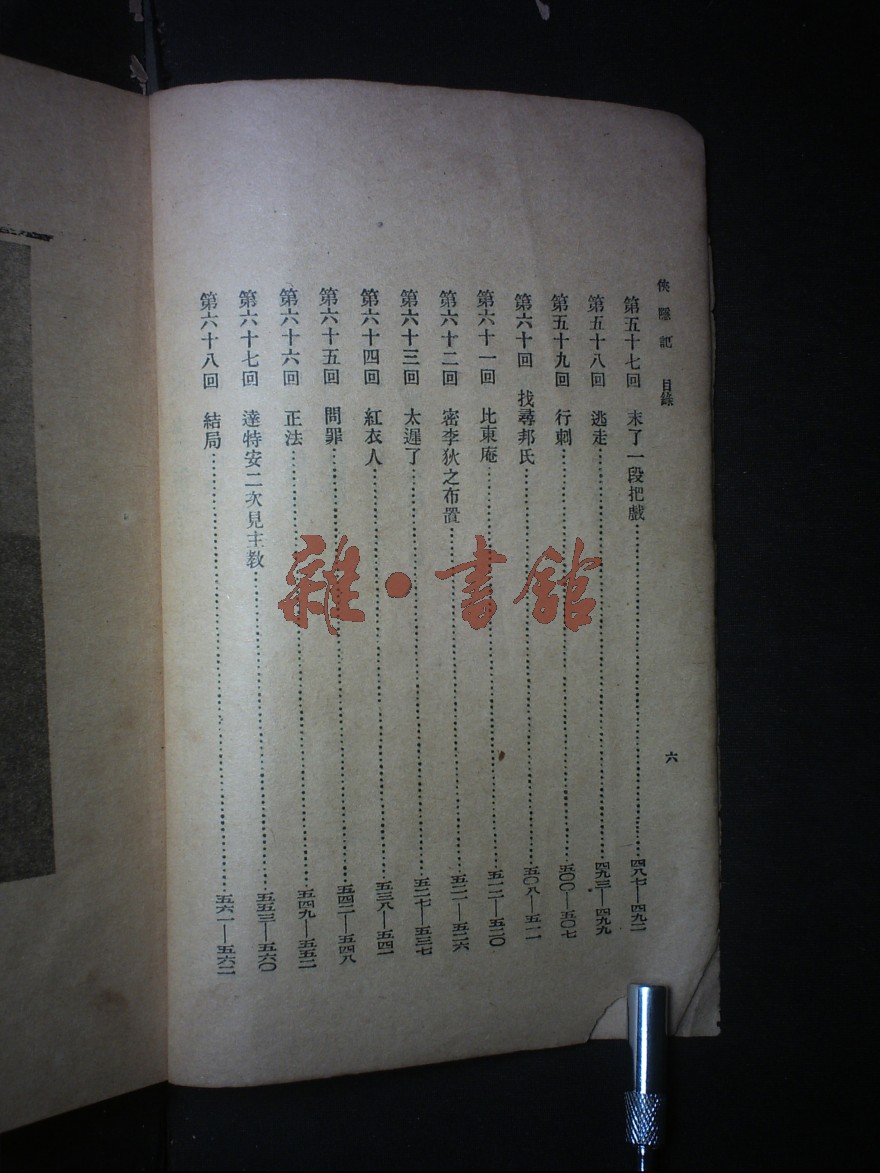 俠隱記 目錄
第五十七回 末了一段把戲 四八七—四九二
第五十八回 逃走 四九三—四九九
第五十九回 行刺 五〇〇—五〇七
第六十回 找尋邦氏 五〇八—五一一
第六十一回 比東庵 五一二—五二〇
第六十二回 密李狄之布置 五二一—五二六
第六十三回 太遲了 五二七—五三七
第六十四回 紅衣人 五三八—五四一
第六十五回 問罪 五四二—五四八
第六十六回 正法 五四九—五五二
第六十七回 達特安二次見主教 五五三—五六〇
第六十八回 結局 五六一—五六二
六
雜·書館